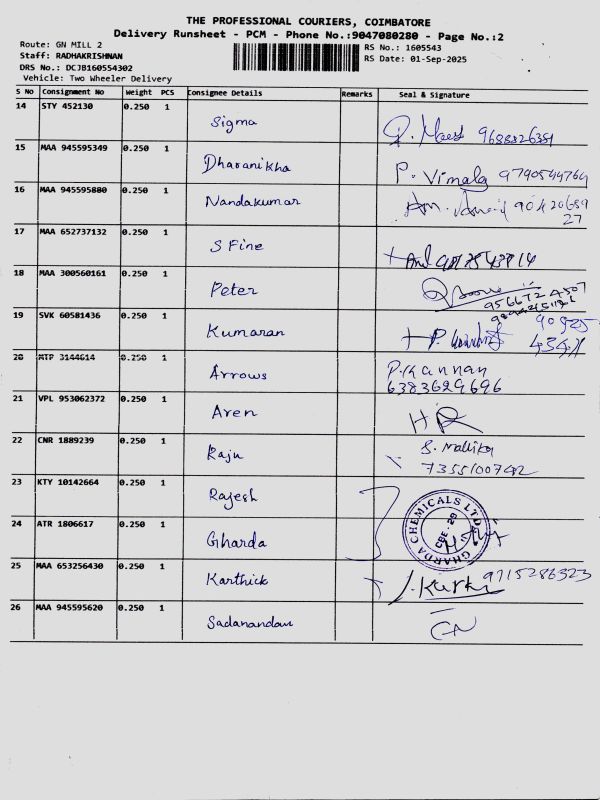 THE PROFESSIONAL COURIERS, COIMBATORE
Delivery Runsheet - PCM - Phone No.:9047080280 - Page No.:2
Route: GN MILL 2
Staff: RADHAKRISHNAN
DRS No.: DCJB160554302
Vehicle: Two Wheeler Delivery
RS No.: 1605543
RS Date: 01-Sep-2025
S No Consignment No Weight PCS Consignee Details Remarks Seal & Signature
14 STY 452130 0.250 1 Sigma 9688826381
15 MAA 945595349 0.250 1 Dharanikha P. Vimala 9790544764
16 MAA 945595880 0.250 1 Nandakumar 9042068927
17 MAA 652737132 0.250 1 S Fine
18 MAA 300560161 0.250 1 Peter
19 SVK 60581436 0.250 1 Kumaran
20 MTP 3144614 0.250 1 Arrows P. Kannan
6383629696
21 VPL 953062372 0.250 1 Aren
22 CNR 1889239 0.250 1 Raju S. Mallika
7355100742
23 KTY 10142664 0.250 1 Rajesh
24 ATR 1806617 0.250 1 Gharda GHARDA CHEMICALS LTD. CBE - 29
25 MAA 653256430 0.250 1 Karthick 9715286323
26 MAA 945595620 0.250 1 Sadanandam